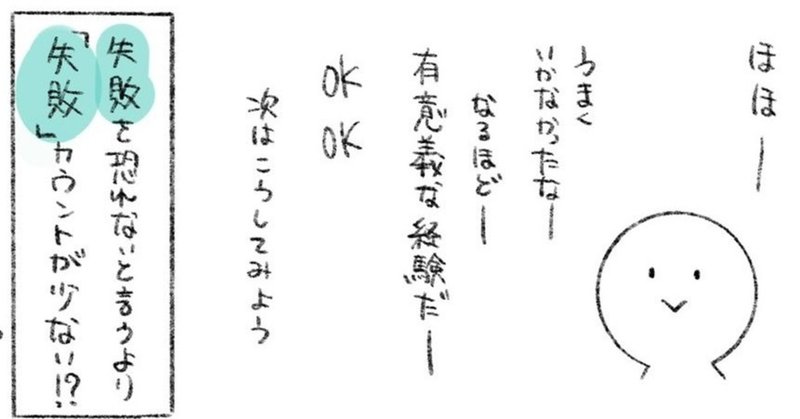 ほほー
うまく
いかなかったなー
なるほどー
有意義な経験だー
OK
OK
次はこうしてみよう
失敗を恐れないと言うより
「失敗」カウントが少ない!?